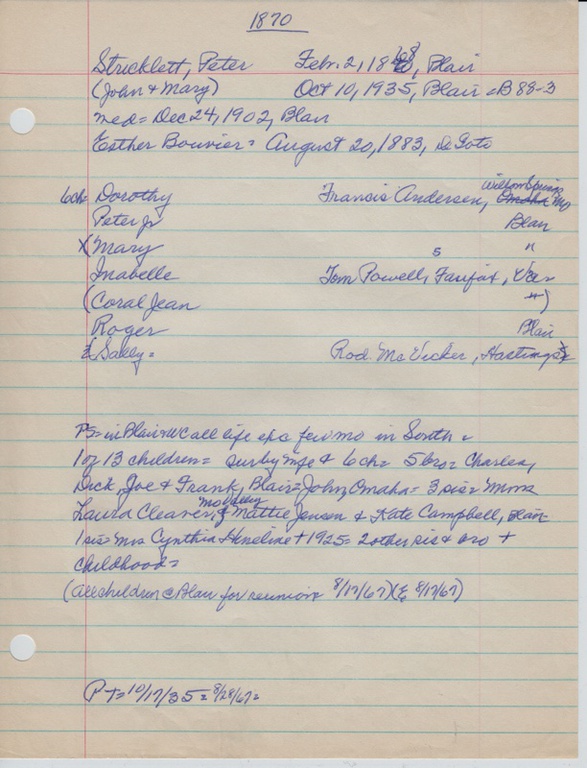 1870
Stricklett, Peter Feb. 2, 1868, Blair
(John & Mary) Oct 10, 1935, Blair = B 88-3
med = Dec 24, 1902, Blair
Esther Bouvier = August 20, 1883, De Soto
6 ch = Dorothy Francis Andersen, Omaha Mo
Peter Jr Blair
Mary "
Inabelle Tom Powell, Fairfax, 
(Coral Jean ")
Roger Blair
& Sally = Rod. McVicker, Hastings
PS = in Blair & WC all life epc few mo in South =
1 of 13 children = surby wife & 6 ch = 5 bro = Charles,
Dick, Joe & Frank, Blair = John, Omaha = 3 sis = Mmes
Laura Cleaver, & Mattie Jensen & Kate Campbell, Blair =
1 sis = Mrs Cynthia + 1925 = 2 other sis & bro +
childhood =
(all children @ Blair for reunion 8/17/67) (E 8/17/67)
PT = 10/17/35 = 8/28/67 =